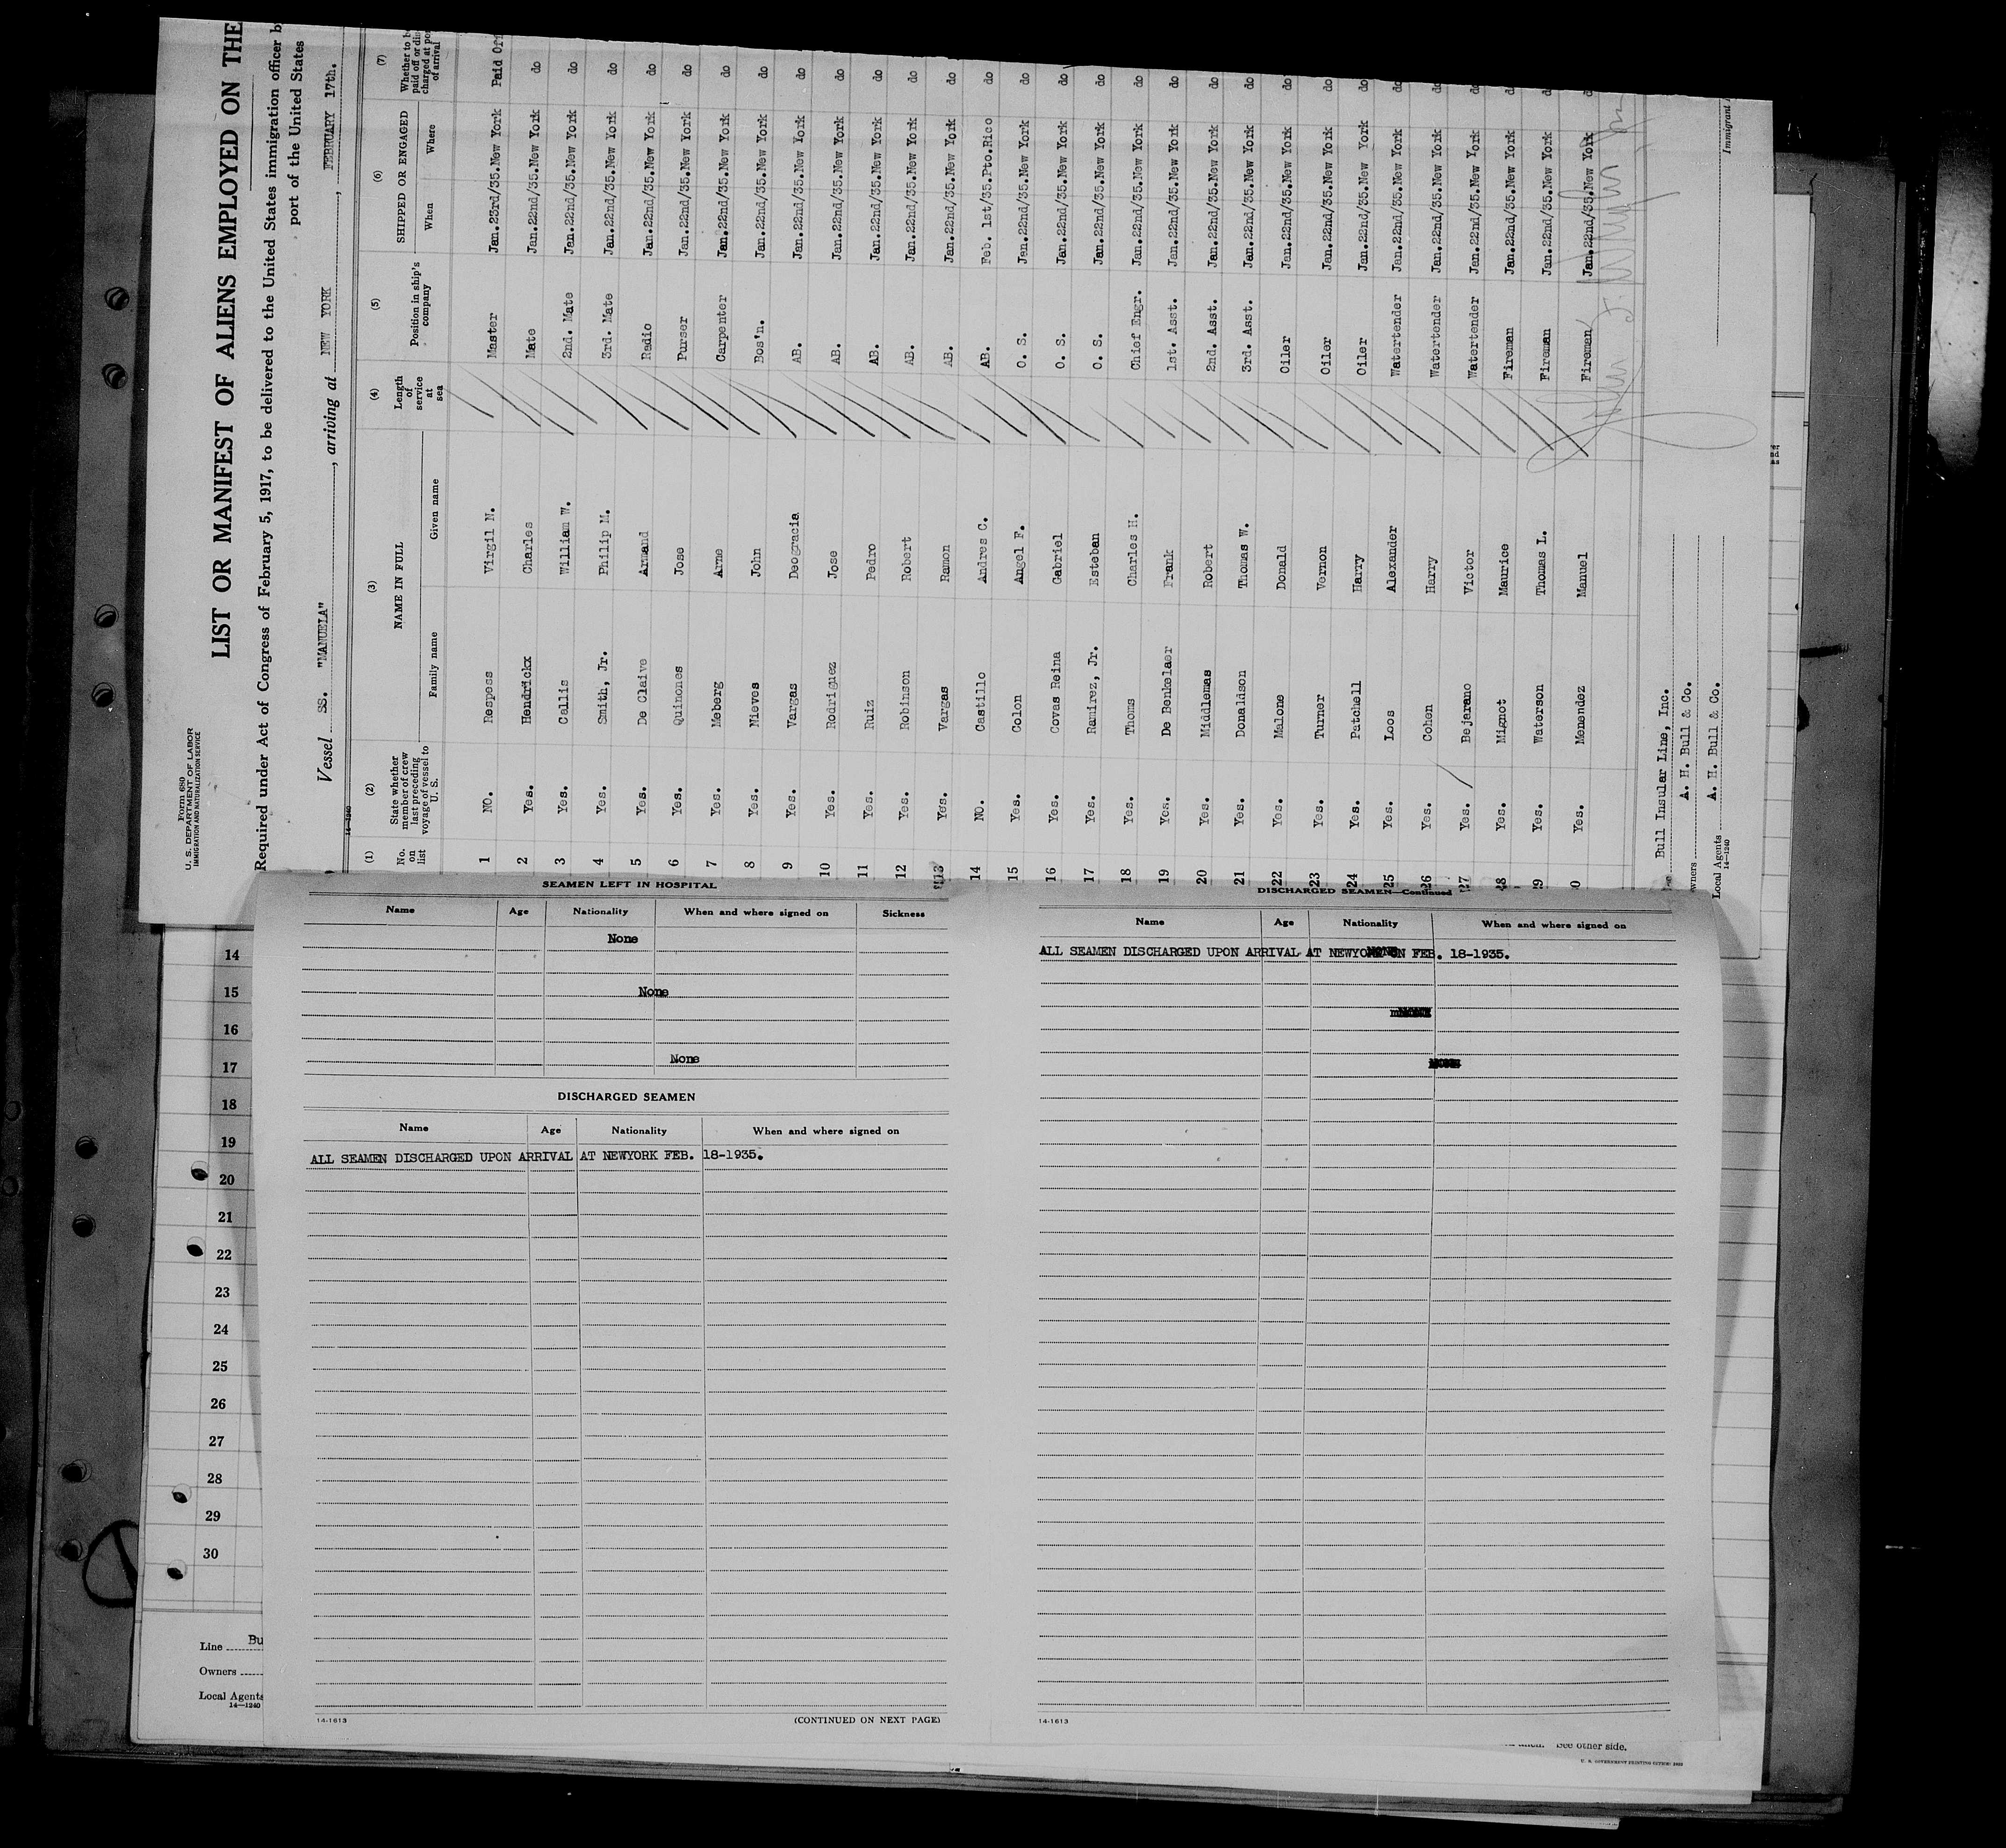 Form 680
U. S. DEPARTMENT OF LABOR
IMMIGRATION AND NATURALIZATION SERVICE
LIST OR MANIFEST OF ALIENS EMPLOYED ON THE
Required under Act of Congress of February 5, 1917, to be delivered to the United States immigration officer b
port of the United States
Vessel SS. "MANUELA", arriving at NEW YORK, FEBRUARY 17th.
14-1240
(1) (2) (3) (4) (5) (6) (7)
No. on list State whether member of crew last preceding voyage of vessel to U. S. NAME IN FULL Family name Given name Length of service at sea Position in ship's company SHIPPED OR ENGAGED When Where Whether to be paid off or dis charged at port of arrival
1 NO. Respess Virgil N. Master Jan.23rd/35.New York Paid Off
2 Yes. Hendrickx Charles Mate Jan.22nd/35.New York do
3 Yes. Callis William W. 2nd. Mate Jan.22nd/35.New York do
4 Yes. Smith, Jr. Philip M. 3rd. Mate Jan.22nd/35.New York do
5 Yes. De Claive Armand Radio Jan.22nd/35.New York do
6 Yes. Quinones Jose Purser Jan.22nd/35.New York do
7 Yes. Meberg Arne Carpenter Jan.22nd/35.New York do
8 Yes. Nieves John Bos'n. Jan.22nd/35.New York do
9 Yes. Vargas Deogracia AB. Jan.22nd/35.New York do
10 Yes. Rodriguez Jose AB. Jan.22nd/35.New York do
11 Yes. Ruiz Pedro AB. Jan.22nd/35.New York do
12 Yes. Robinson Robert AB. Jan.22nd/35.New York do
13 Yes. Vargas Ramon AB. Jan.22nd/35.New York do
14 NO. Castillo Andres C. AB. Feb. 1st/35.Pto.Rico do
15 Yes. Colon Angel F. O. S. Jan.22nd/35.New York do
16 Yes. Covas Reina Gabriel O. S. Jan.22nd/35.New York do
17 Yes. Ramirez, Jr. Esteban O. S. Jan.22nd/35.New York do
18 Yes. Thoms Charles H. Chief Engr. Jan.22nd/35.New York do
19 Yes. De Benkelaer Frank 1st. Asst. Jan.22nd/35.New York do
20 Yes. Middlemas Robert 2nd. Asst. Jan.22nd/35.New York do
21 Yes. Donaldson Thomas W. 3rd. Asst. Jan.22nd/35.New York do
22 Yes. Malone Donald Oiler Jan.22nd/35.New York do
23 Yes. Turner Vernon Oiler Jan.22nd/35.New York do
24 Yes. Patchell Harry Oiler Jan.22nd/35.New York do
25 Yes. Loos Alexander Watertender Jan.22nd/35.New York do
26 Yes. Cohen Harry Watertender Jan.22nd/35.New York do
27 Yes. Bejarano Victor Watertender Jan.22nd/35.New York do
28 Yes. Mignot Maurice Fireman Jan.22nd/35.New York do
29 Yes. Waterson Thomas L. Fireman Jan.22nd/35.New York do
0 Yes. Menendez Manuel Fireman Jan.22nd/35.New York d
Bull Insular Line, Inc.
wners A. H. Bull & Co.
Local Agents A. H. Bull & Co.
14-1240
Immigrant
SEAMEN LEFT IN HOSPITAL
Name Age Nationality When and where signed on Sickness
None
None
None
DISCHARGED SEAMEN
Name Age Nationality When and where signed on
ALL SEAMEN DISCHARGED UPON ARRIVAL AT NEWYORK FEB. 18-1935.
14-1613
(CONTINUED ON NEXT PAGE)
DISCHARGED SEAMEN—Continued
Name Age Nationality When and where signed on
ALL SEAMEN DISCHARGED UPON ARRIVAL AT NEWYORK ON FEB. 18-1935.
14-1613
14
15
16
17
18
19
20
21
22
23
24
25
26
27
28
29
30
Line Bu
Owners
Local Agents
14—1240
See other side.
U. S. GOVERNMENT PRINTING OFFICE